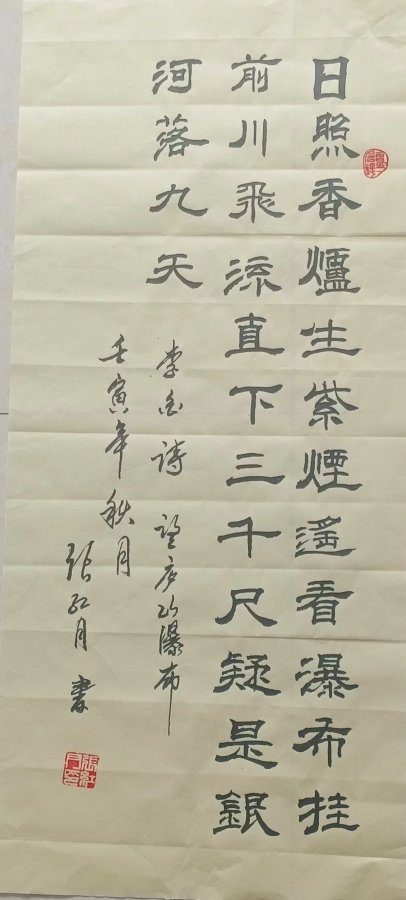 日照香爐生紫煙遥看瀑布挂
前川飛流直下三千尺疑是銀
河落九天
李白詩 望庐山瀑布
壬寅年秋月
張紅月 書